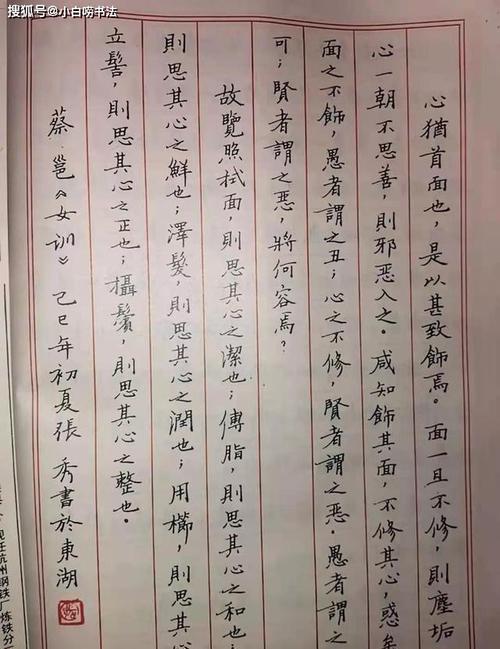 搜狐号@小白唠书法
心猶首面也，是以甚致飾焉。面一旦不修，則塵垢
心一朝不思善，則邪恶入之。咸知飾其面，不修其心，惑矣
面之不飾，愚者謂之丑；心之不修，賢者謂之恶。愚者謂之
可；賢者謂之恶，將何容焉？
故覽照拭面，則思其心之潔也；傅脂，則思其心之和也；
則思其心之鮮也；澤髮，則思其心之潤也；用櫛，則思其
立髻，則思其心之正也；攝鬢，則思其心之整也。
蔡邕《女训》己巳年初夏張秀書於東湖
现任杭州钢铁厂炼铁分